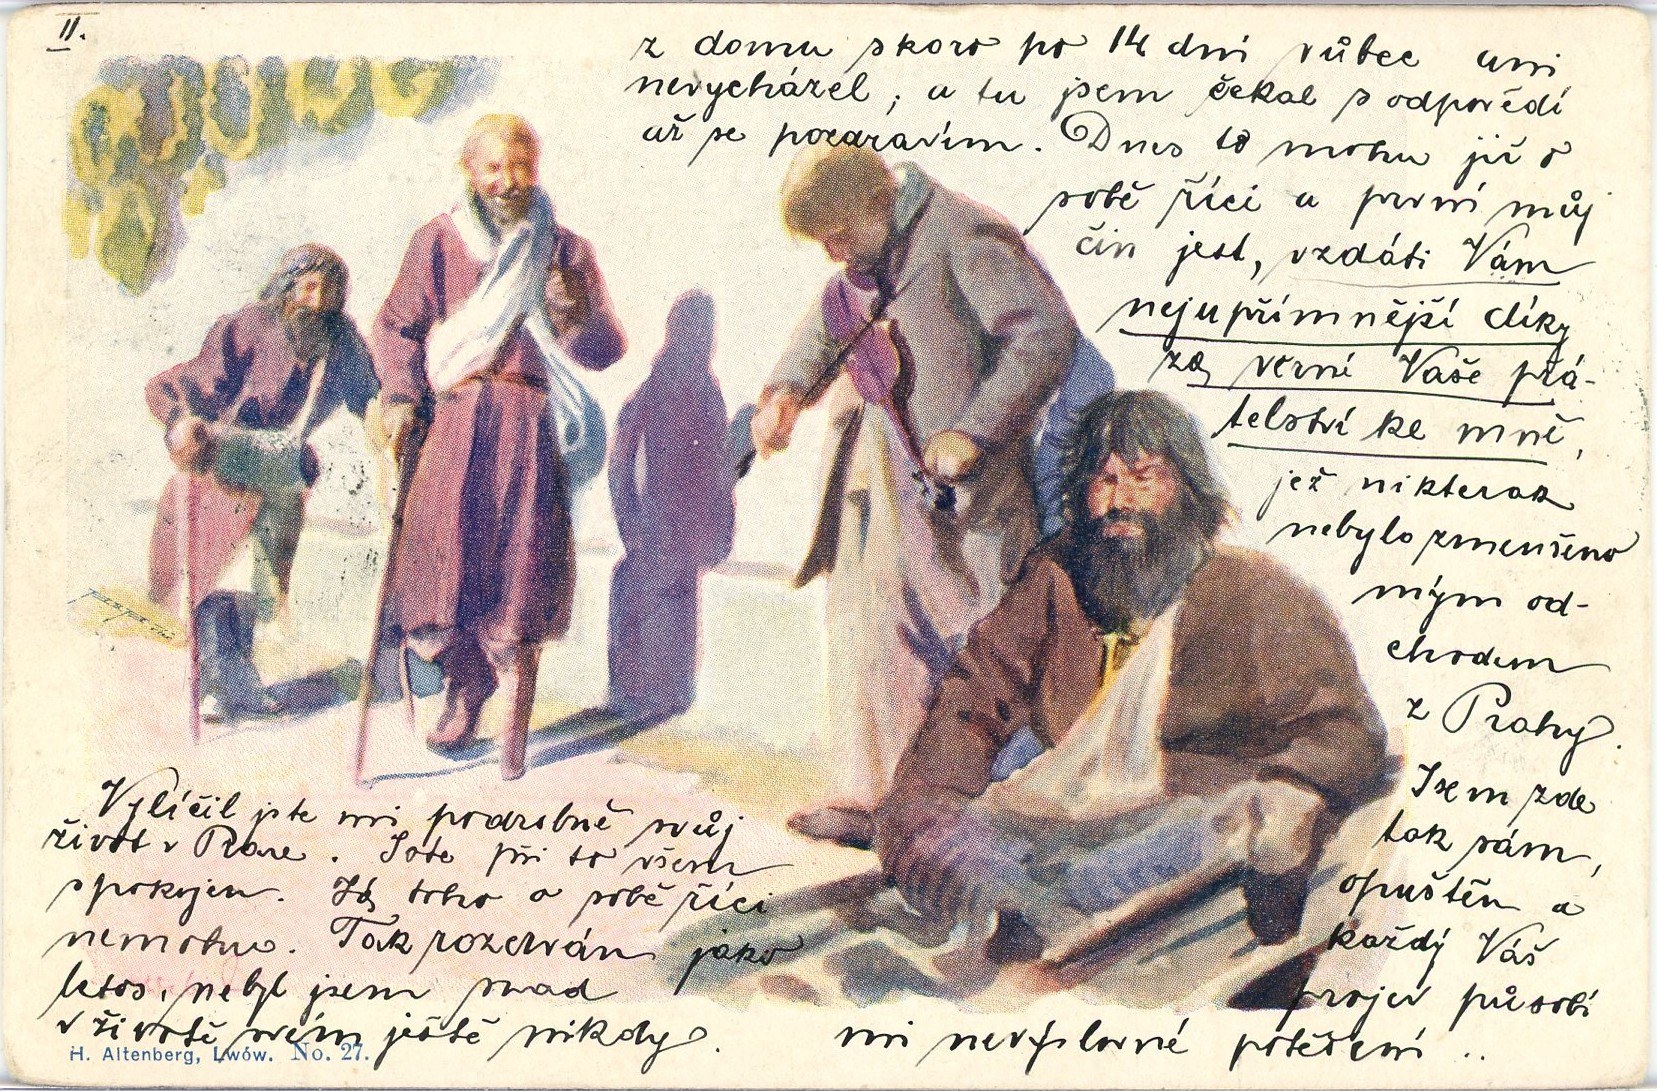 II.
z domu skoro po 14 dní vůbec ani
nevycházel, a tu jsem čekal s odpovědí
až se pozdravím. Dnes to mohu již o
sobě říci a první můj
čin jest, vzdáti Vám
nejupřímnější díky
za věrné Vaše přá-
telství ke mně,
jež nikterak
nebylo zmenšeno
mým od-
chodem
z Prahy.
Jsem zde
tak sám,
opuštěn a
každý Váš
projev působí
mi nevýslovné potěšení ..
Vylíčil jste mi podrobně svůj
život v Praze. Jste při to všem
spokojen. Já toho o sobě říci
nemohu. Tak rozerván jako
letos, nebyl jsem snad
v životě svém ještě nikdy.
H. Altenberg, Lwów. No. 27.